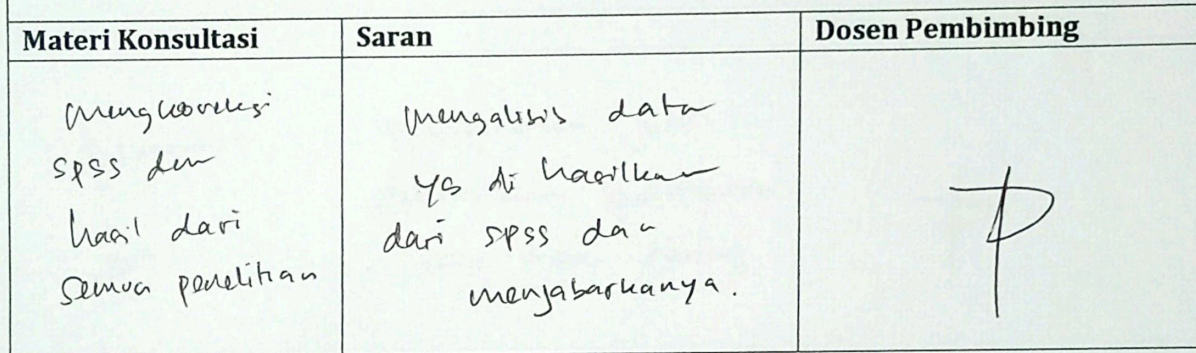 Materi Konsultasi
Saran
Dosen Pembimbing
mengkoreksi
spss dan
hasil dari
semua penelitian
mengalisis data
yg di hasilkan
dari spss dan
menjabarkanya.